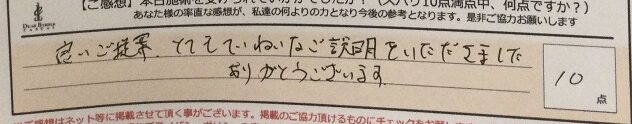 【ご感想】本日施術を受けられていかがでしたか？（ズバリ10点満点中、何点ですか？）
あなた様の率直な感想が、私達の何よりの力となり今後の参考となります。是非ご協力お願いします
良いご提案、とてもていねいなご説明をいただきました
ありがとうございます
10
点
※ご感想はネット等に掲載させて頂く事がございます。掲載のご協力頂けるものにチェックをお願い